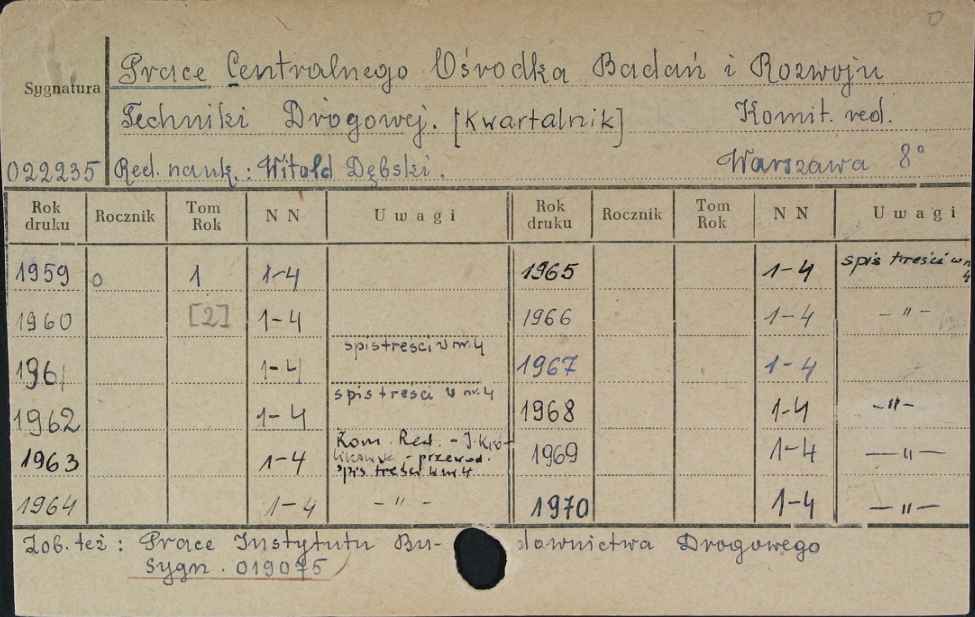 Prace Centralnego Ośrodka Badań i Rozwoju
Sygnatura
Techniki Drogowej. [Kwartalnik] Komit. red.
022235 Red. nauk.: Witold Dębski. Warszawa 8°
Rok druku Rocznik Tom Rok N N Uwagi Rok druku Rocznik Tom Rok N N Uwagi
1959 0 1 1-4 1965 1-4 spis treści w nr 4
1960 [2] 1-4 1966 1-4 - " -
1961 1-4 spis treści w nr. 4 1967 1-4
1962 1-4 spis treści w nr. 4 1968 1-4 - " -
1963 1-4 Kom. Red. - J. - przewod. spis treści w nr 4. 1969 1-4 - " -
1964 1-4 - " - 1970 1-4 - " -
Zob. też: Prace Instytutu Bu- downictwa Drogowego
Sygn. 019075